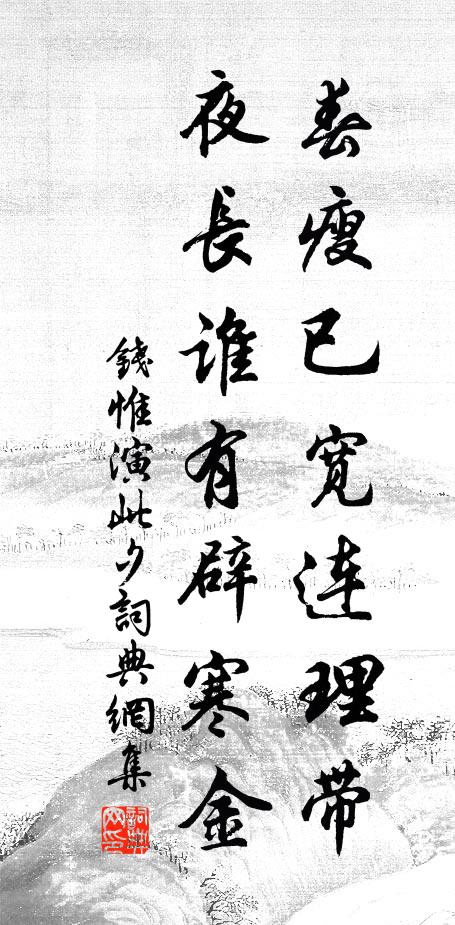 春瘦已宽连理带
夜長谁有辟寒金
錢惟演此夕詞典網集